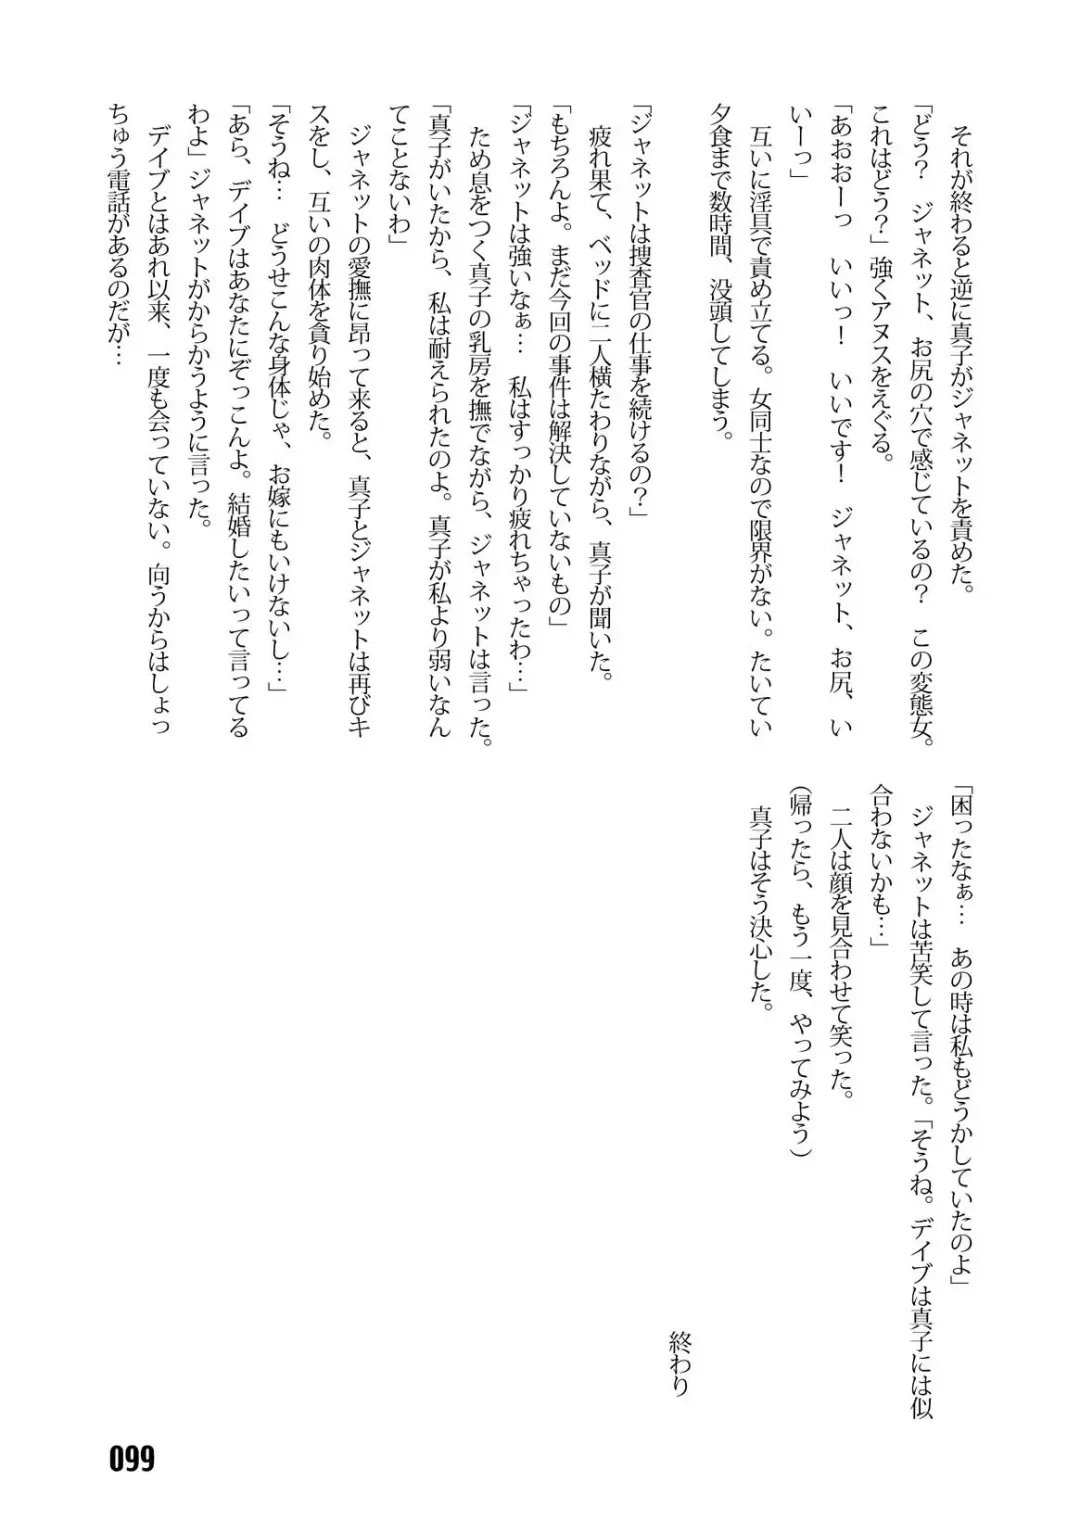 それが終わると逆に真子がジャネットを責めた。
「どう？　ジャネット、お尻の穴で感じているの？　この変態女。
これはどう？」強くアヌスをえぐる。
「あおおーっ　いいっ！　いいです！　ジャネット、お尻、い
いーっ」
　互いに淫具で責め立てる。女同士なので限界がない。たいてい
夕食まで数時間、没頭してしまう。
「ジャネットは捜査官の仕事を続けるの？」
　疲れ果て、ベッドに二人横たわりながら、真子が聞いた。
「もちろんよ。まだ今回の事件は解決していないもの」
「ジャネットは強いなぁ…　私はすっかり疲れちゃったわ…」
　ため息をつく真子の乳房を撫でながら、ジャネットは言った。
「真子がいたから、私は耐えられたのよ。真子が私より弱いなん
てことないわ」
　ジャネットの愛撫に昂って来ると、真子とジャネットは再びキ
スをし、互いの肉体を貪り始めた。
「そうね…　どうせこんな身体じゃ、お嫁にもいけないし…」
「あら、デイブはあなたにぞっこんよ。結婚したいって言ってる
わよ」ジャネットがからかうように言った。
　デイブとはあれ以来、一度も会っていない。向うからはしょっ
ちゅう電話があるのだが…
「困ったなぁ…　あの時は私もどうかしていたのよ」
　ジャネットは苦笑して言った。「そうね。デイブは真子には似
合わないかも…」
　二人は顔を見合わせて笑った。
（帰ったら、もう一度、やってみよう）
　真子はそう決心した。
終わり
099